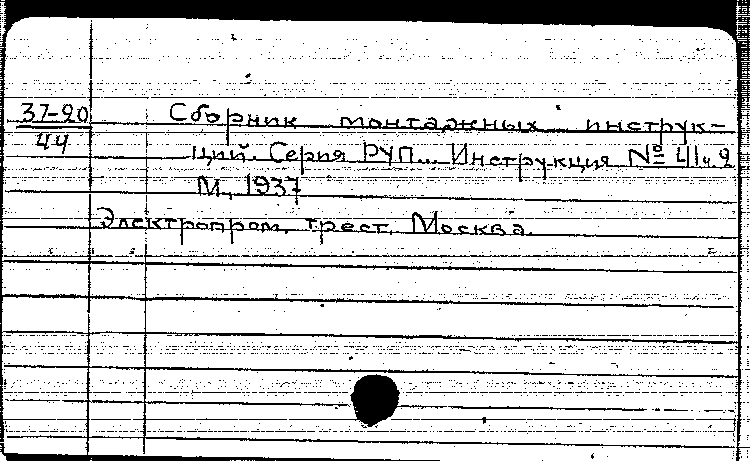 37-20
44
Сборник монтажных инструк-
ций. Серия РУП... Инструкция №
М., 1937
Электропром. трест. Москва.